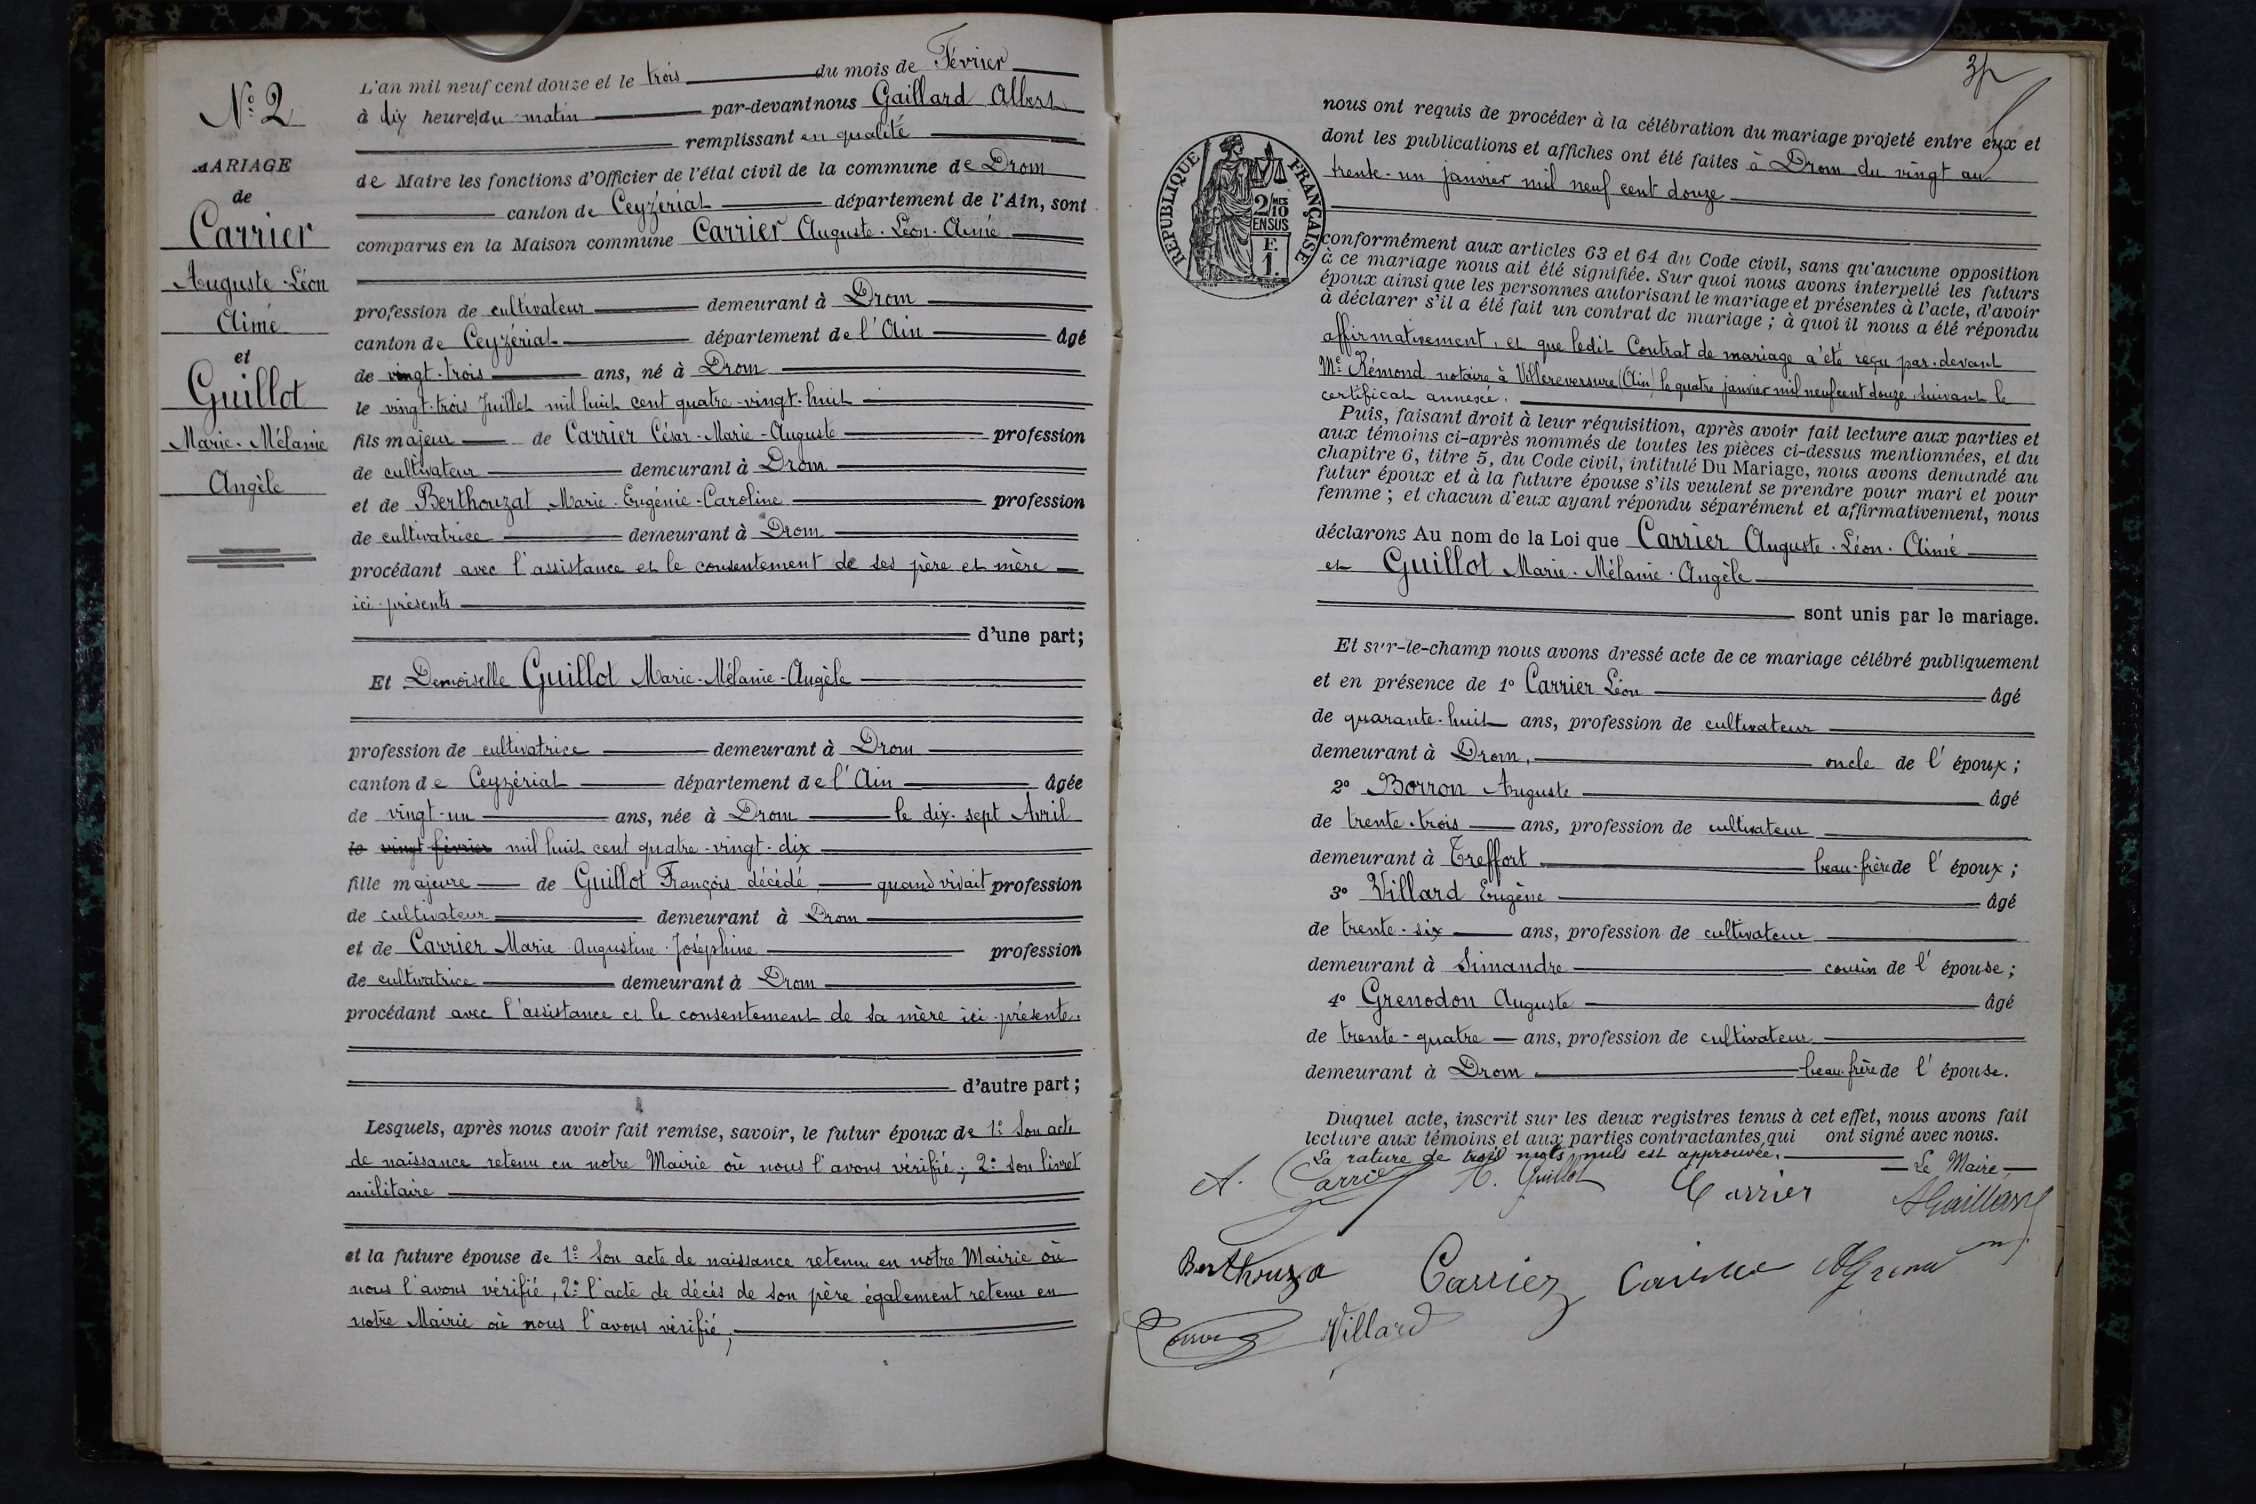 N° 2
MARIAGE
de
Carrier
Auguste-Léon
Aimé
et
Guillot
Marie-Mélanie
Angèle
L'an mil neuf cent douze et le trois du mois de Février
à dix heures du matin par-devant nous Gaillard Albert
remplissant en qualité
de Maire les fonctions d'Officier de l'état civil de la commune de Drom
canton de Ceyzériat département de l'Ain, sont
comparus en la Maison commune Carrier Auguste-Léon-Aimé
profession de cultivateur demeurant à Drom
canton de Ceyzériat département de l'Ain âgé
de vingt-trois ans, né à Drom
le vingt-trois Juillet mil huit cent quatre-vingt-huit
fils majeur de Carrier César-Marie-Auguste profession
de cultivateur demeurant à Drom
et de Berthouzat Marie-Eugénie-Caroline profession
de cultivatrice demeurant à Drom
procédant avec l'assistance et le consentement de ses père et mère
ici-présents
d'une part;
Et Demoiselle Guillot Marie-Mélanie-Angèle
profession de cultivatrice demeurant à Drom
canton de Ceyzériat département de l'Ain âgée
de vingt-un ans, née à Drom le dix-sept Avril
le vingt février mil huit cent quatre-vingt-dix
fille majeure de Guillot François décédé quand vivait profession
de cultivateur demeurant à Drom
et de Carrier Marie-Augustine-Joséphine profession
de cultivatrice demeurant à Drom
procédant avec l'assistance et le consentement de sa mère ici-présente.
d'autre part;
Lesquels, après nous avoir fait remise, savoir, le futur époux de 1° Son acte
de naissance retenu en notre Mairie où nous l'avons vérifié; 2° son livret
militaire
et la future épouse de 1° Son acte de naissance retenu en notre Mairie où
nous l'avons vérifié, 2° l'acte de décès de son père également retenu en
notre Mairie où nous l'avons vérifié;
RÉPUBLIQUE FRANÇAISE
2/10 MES
EN SUS
F.
1.
nous ont requis de procéder à la célébration du mariage projeté entre eux et
dont les publications et affiches ont été faites à Drom du vingt au
trente-un janvier mil neuf cent douze
conformément aux articles 63 et 64 du Code civil, sans qu'aucune opposition
à ce mariage nous ait été signifiée. Sur quoi nous avons interpellé les futurs
époux ainsi que les personnes autorisant le mariage et présentes à l'acte, d'avoir
à déclarer s'il a été fait un contrat de mariage; à quoi il nous a été répondu
affirmativement, et que ledit Contrat de mariage a été reçu par-devant
Me Rémond notaire à Villereversure (Ain) le quatre janvier mil neuf cent douze, suivant le
certificat annexé.
Puis, faisant droit à leur réquisition, après avoir fait lecture aux parties et
aux témoins ci-après nommés de toutes les pièces ci-dessus mentionnées, et du
chapitre 6, titre 5, du Code civil, intitulé Du Mariage, nous avons demandé au
futur époux et à la future épouse s'ils veulent se prendre pour mari et pour
femme; et chacun d'eux ayant répondu séparément et affirmativement, nous
déclarons Au nom de la Loi que Carrier Auguste-Léon-Aimé
et Guillot Marie-Mélanie-Angèle
sont unis par le mariage.
Et sur-le-champ nous avons dressé acte de ce mariage célébré publiquement
et en présence de 1° Carrier Léon âgé
de quarante-huit ans, profession de cultivateur
demeurant à Drom, oncle de l'époux;
2° Borron Auguste âgé
de trente-trois ans, profession de cultivateur
demeurant à Treffort beau-frère de l'époux;
3° Villard Eugène âgé
de trente-six ans, profession de cultivateur
demeurant à Simandre cousin de l'épouse;
4° Grenodon Auguste âgé
de trente-quatre ans, profession de cultivateur
demeurant à Drom beau-frère de l'épouse.
Duquel acte, inscrit sur les deux registres tenus à cet effet, nous avons fait
lecture aux témoins et aux parties contractantes qui ont signé avec nous.
La rature de trois mots nuls est approuvée. Le Maire
A. Carrier Guillot Carrier AGaillard
Berthouza Carrier
Villard